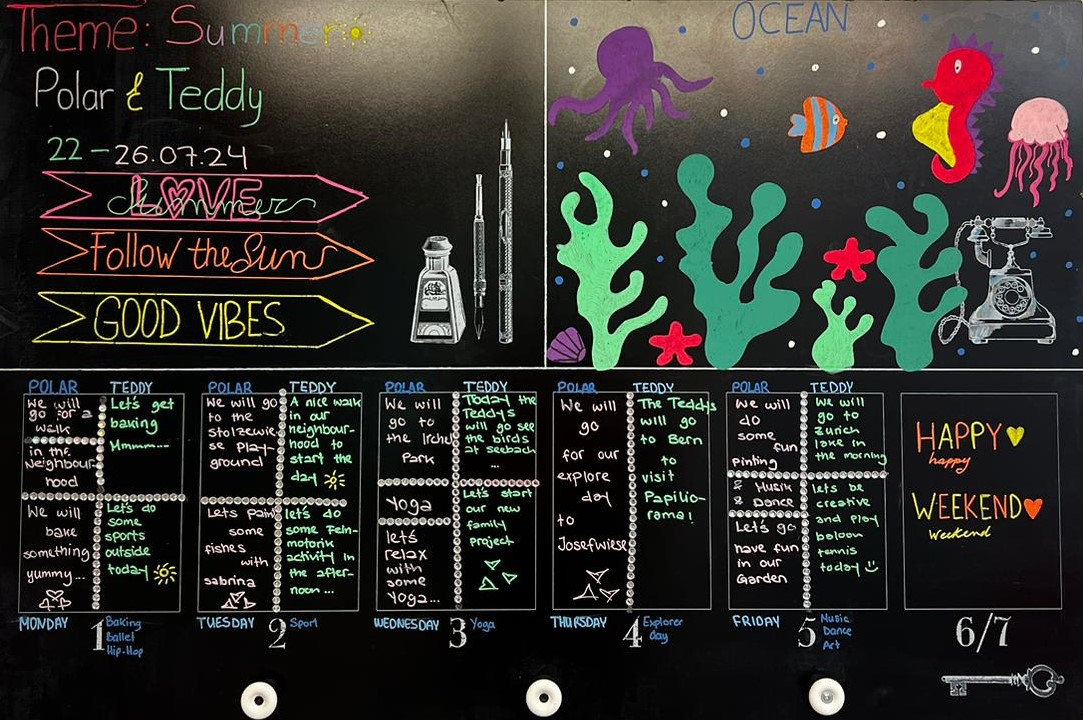 Theme: Summer
Polar & Teddy
22 - 26.07.24
LOVE
Summer
Follow the Sun
GOOD VIBES
OCEAN
POLAR
We will
go for a
walk
in the
Neighbour
hood
We will
bake
something
yummy...
TEDDY
Let's get
baking
Mmmm...
Let's do
some
sports
outside
today
MONDAY
1
Baking
Ballet
Hip-Hop
POLAR
We will go
to the
Stolzewie
se Play-
ground
Lets Paint
some
fishes
with
sabrina
TEDDY
A nice walk
in our
neighbour-
hood to
start the
day
let's do
some Fein-
motorik
activity in
the after-
noon ...
TUESDAY
2
Sport
POLAR
We will
go to
the Irchel
Park
Yoga
let's
relax
with
some
Yoga...
TEDDY
Today the
Teddys
will go see
the birds
at seebach
...
Let's start
our new
family
project
WEDNESDAY
3
Yoga
POLAR
We will
go
for our
explore
day
to
Josefwiese
TEDDY
The Teddys
will go
to Bern
to
visit
Papilio-
rama!
THURSDAY
4
Explorer
day
POLAR
We will
do
some
fun
Pinting
& Musik
& Dance
Let's go
have fun
in our
Garden
TEDDY
We will
go to
Zurich
lake in
the morning
lets be
creative
and play
baloon
tennis
today
FRIDAY
5
Music
Dance
Art
HAPPY
happy
WEEKEND
Weekend
6/7